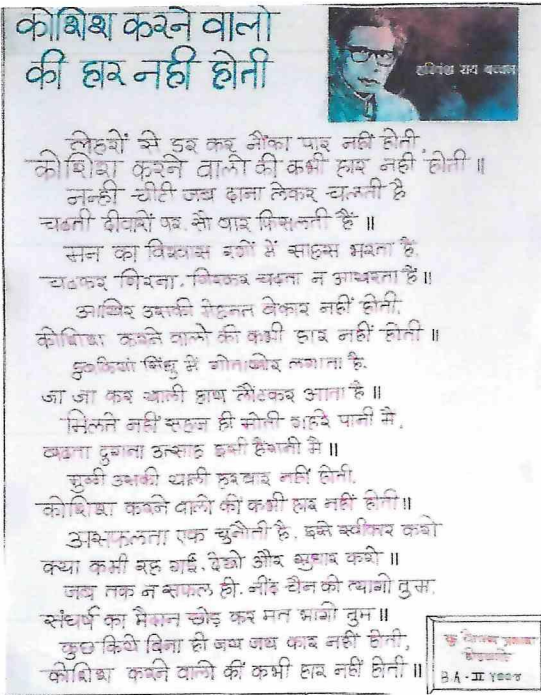 कोशिश करने वालो
की हार नही होती
हरिवंश राय बच्चन
लेहरों से डर कर नौंका पार नहीं होती,
कोशिश करने वालो की कभी हार नहीं होती ॥
नन्ही चीटी जब दाना लेकर चलती है
चढती दीवारों पर, सौ बार फिसलती हैं ॥
मन का विश्वास रगों में साहस भरता हैं,
चढकर गिरना, गिरकर चढ़ता न आखरता हैं ॥
आखिर उसकी मेहनत बेकार नहीं होती,
कोशिश करने वालो की कभी हार नहीं होती ॥
डुबकियां सिंधु में गोताखोर लगाता है,
जा जा कर खाली हाथ लौटकर आता है ॥
मिलते नहीं सहज ही मोती गहरे पानी मै,
बढता दुगना उत्साह इसी हैरानी मै ॥
मुठ्ठी उसकी खाली हरबार नहीं होती,
कोशिश करने वालो की कभी हार नहीं होती ॥
असफलता एक चुनौती है, इसे स्वीकार करो
क्या कमी रह गई, देखो और सुधार करो ॥
जब तक न सफल हो, नींद चैन को त्यागो तुम,
संघर्ष का मैदान छोड़ कर मत भागो तुम ॥
कुछ किये बिना ही जय जय कार नहीं होती,
कोशिश करने वालो की कभी हार नहीं होती ॥
कु
B.A - II